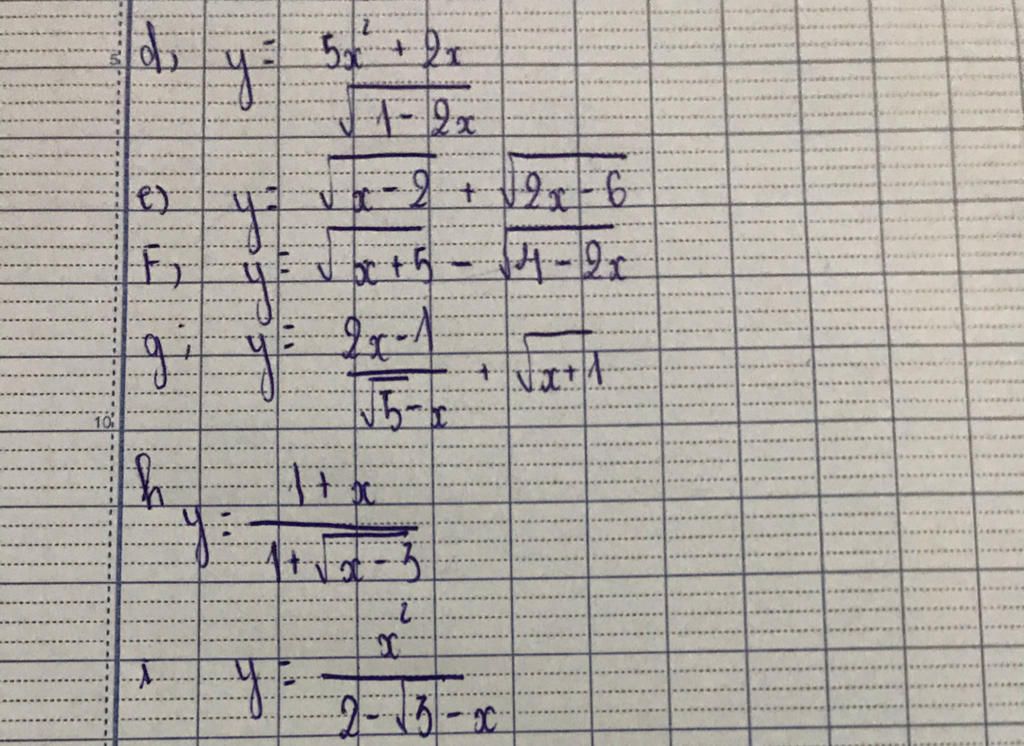 5
d, y = 5x² + 2x
√(1 - 2x)
e) y = √(x - 2) + √(2x - 6)
F, y = √(x + 5) - √(4 - 2x)
g, y = (2x - 1)/(√5 - x) + √(x + 1)
10
h y = (1 + x)/(1 + √(x - 3))
i y = x²/(2 - √3 - x)